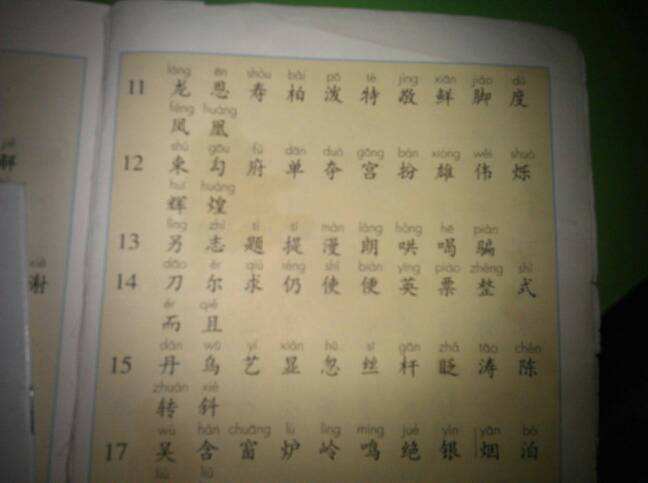 lóng ēn shòu bǎi pō tè jìng xiān jiǎo dù
11 龙 恩 寿 柏 泼 特 敬 鲜 脚 度
fèng huáng
凤 凰
shù gōu fǔ dān duó gōng bàn xióng wěi shuò
12 束 勾 府 单 夺 宫 扮 雄 伟 烁
huī huáng
辉 煌
lìng zhì tí tí màn lǎng hǒng hē piàn
13 另 志 题 提 漫 朗 哄 喝 骗
dāo ěr qiú réng shǐ biàn yīng piào zhěng shì
14 刀 尔 求 仍 使 便 英 票 整 式
ér qiě
而 且
dān wū yì xiǎn hū sī gān zhǎ tāo chén
15 丹 乌 艺 显 忽 丝 杆 眨 涛 陈
zhuǎn xié
转 斜
wú hán chuāng lú lǐng míng jué yín yān bó
17 吴 含 窗 炉 岭 鸣 绝 银 烟 泊
liú liǔ
xiè
谢
解